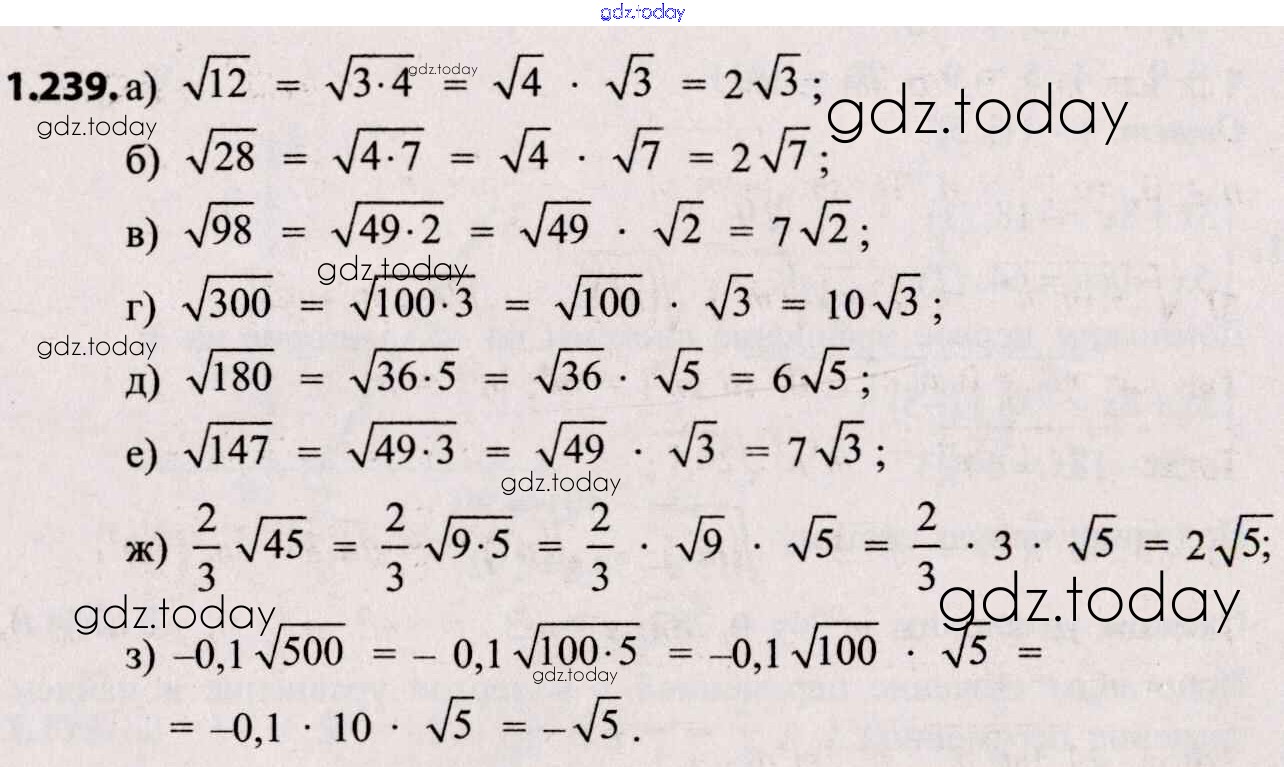 gdz.today
1.239. а) √12 = √(3·4) = √4 · √3 = 2√3;
gdz.today
gdz.today
gdz.today
б) √28 = √(4·7) = √4 · √7 = 2√7;
в) √98 = √(49·2) = √49 · √2 = 7√2;
gdz.today
г) √300 = √(100·3) = √100 · √3 = 10√3;
gdz.today
д) √180 = √(36·5) = √36 · √5 = 6√5;
е) √147 = √(49·3) = √49 · √3 = 7√3;
gdz.today
ж) 2/3 √45 = 2/3 √(9·5) = 2/3 · √9 · √5 = 2/3 · 3 · √5 = 2√5;
gdz.today
gdz.today
з) –0,1√500 = – 0,1√(100·5) = –0,1√100 · √5 =
gdz.today
= –0,1 · 10 · √5 = –√5.